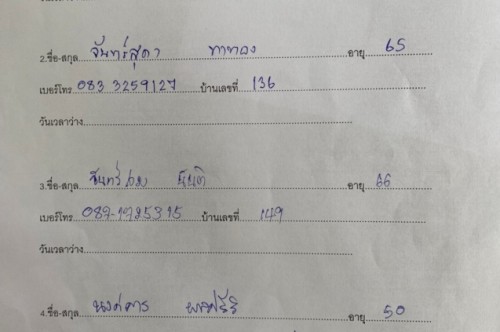 2.ชื่อ-สกุล จันทร์สุดา ทาทอง อายุ 65
เบอร์โทร 083 3259127 บ้านเลขที่ 136
วันเวลาว่าง
3.ชื่อ-สกุล อายุ 66
เบอร์โทร 087-1725315 บ้านเลขที่ 149
วันเวลาว่าง
4.ชื่อ-สกุล อายุ 50